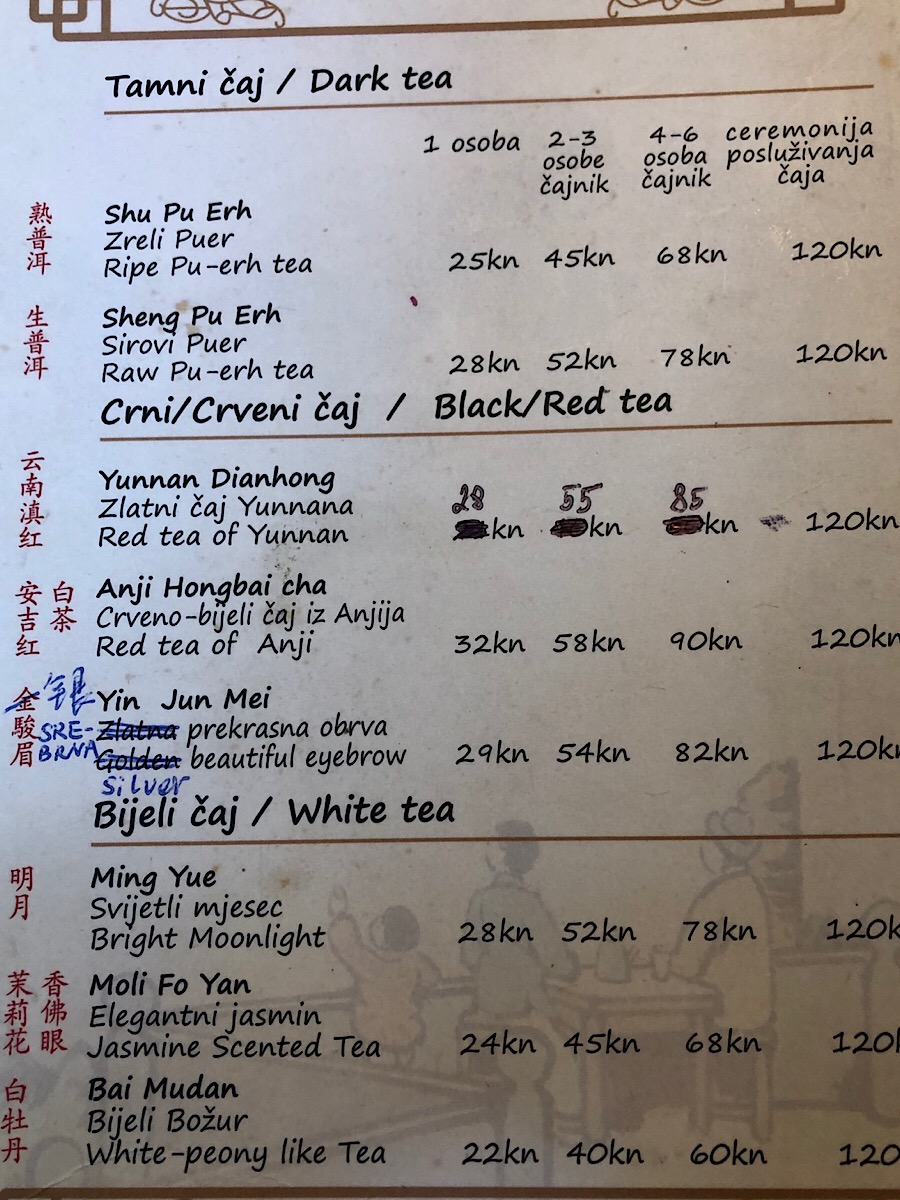 Tamni čaj / Dark tea
1 osoba 2-3 osobe čajnik 4-6 osoba čajnik ceremonija posluživanja čaja
熟普洱
Shu Pu Erh
Zreli Puer
Ripe Pu-erh tea 25kn 45kn 68kn 120kn
生普洱
Sheng Pu Erh
Sirovi Puer
Raw Pu-erh tea 28kn 52kn 78kn 120kn
Crni/Crveni čaj / Black/Red tea
云南滇红
Yunnan Dianhong
Zlatni čaj Yunnana 28 55 85
Red tea of Yunnan kn kn kn 120kn
安吉红
白茶
Anji Hongbai cha
Crveno-bijeli čaj iz Anjija
Red tea of Anji 32kn 58kn 90kn 120kn
金駿眉
银
Yin Jun Mei
SRE-
BRNA
Zlatna prekrasna obrva
Golden beautiful eyebrow 29kn 54kn 82kn 120kn
Silver
Bijeli čaj / White tea
明月
Ming Yue
Svijetli mjesec
Bright Moonlight 28kn 52kn 78kn 120k
茉莉花
香佛眼
Moli Fo Yan
Elegantni jasmin
Jasmine Scented Tea 24kn 45kn 68kn 120k
白牡丹
Bai Mudan
Bijeli Božur
White-peony like Tea 22kn 40kn 60kn 120